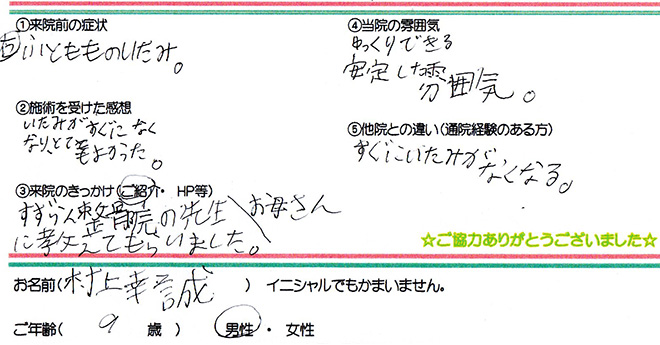 ①来院前の症状
右ふとももののいたみ。
②施術を受けた感想
いたみがすぐになく
なり、とても
よかった。
③来院のきっかけ(ご紹介・HP等)
すずらん整骨院の先生\お母さん
に教えてもらいました。
④当院の雰囲気
ゆっくりできる
安定した雰囲気。
⑤他院との違い(通院経験のある方)
すぐにいたみが
なくなる。
☆ご協力ありがとうございました☆
お名前(村上幸誠)イニシャルでもかまいません。
ご年齢(9歳)男性・女性